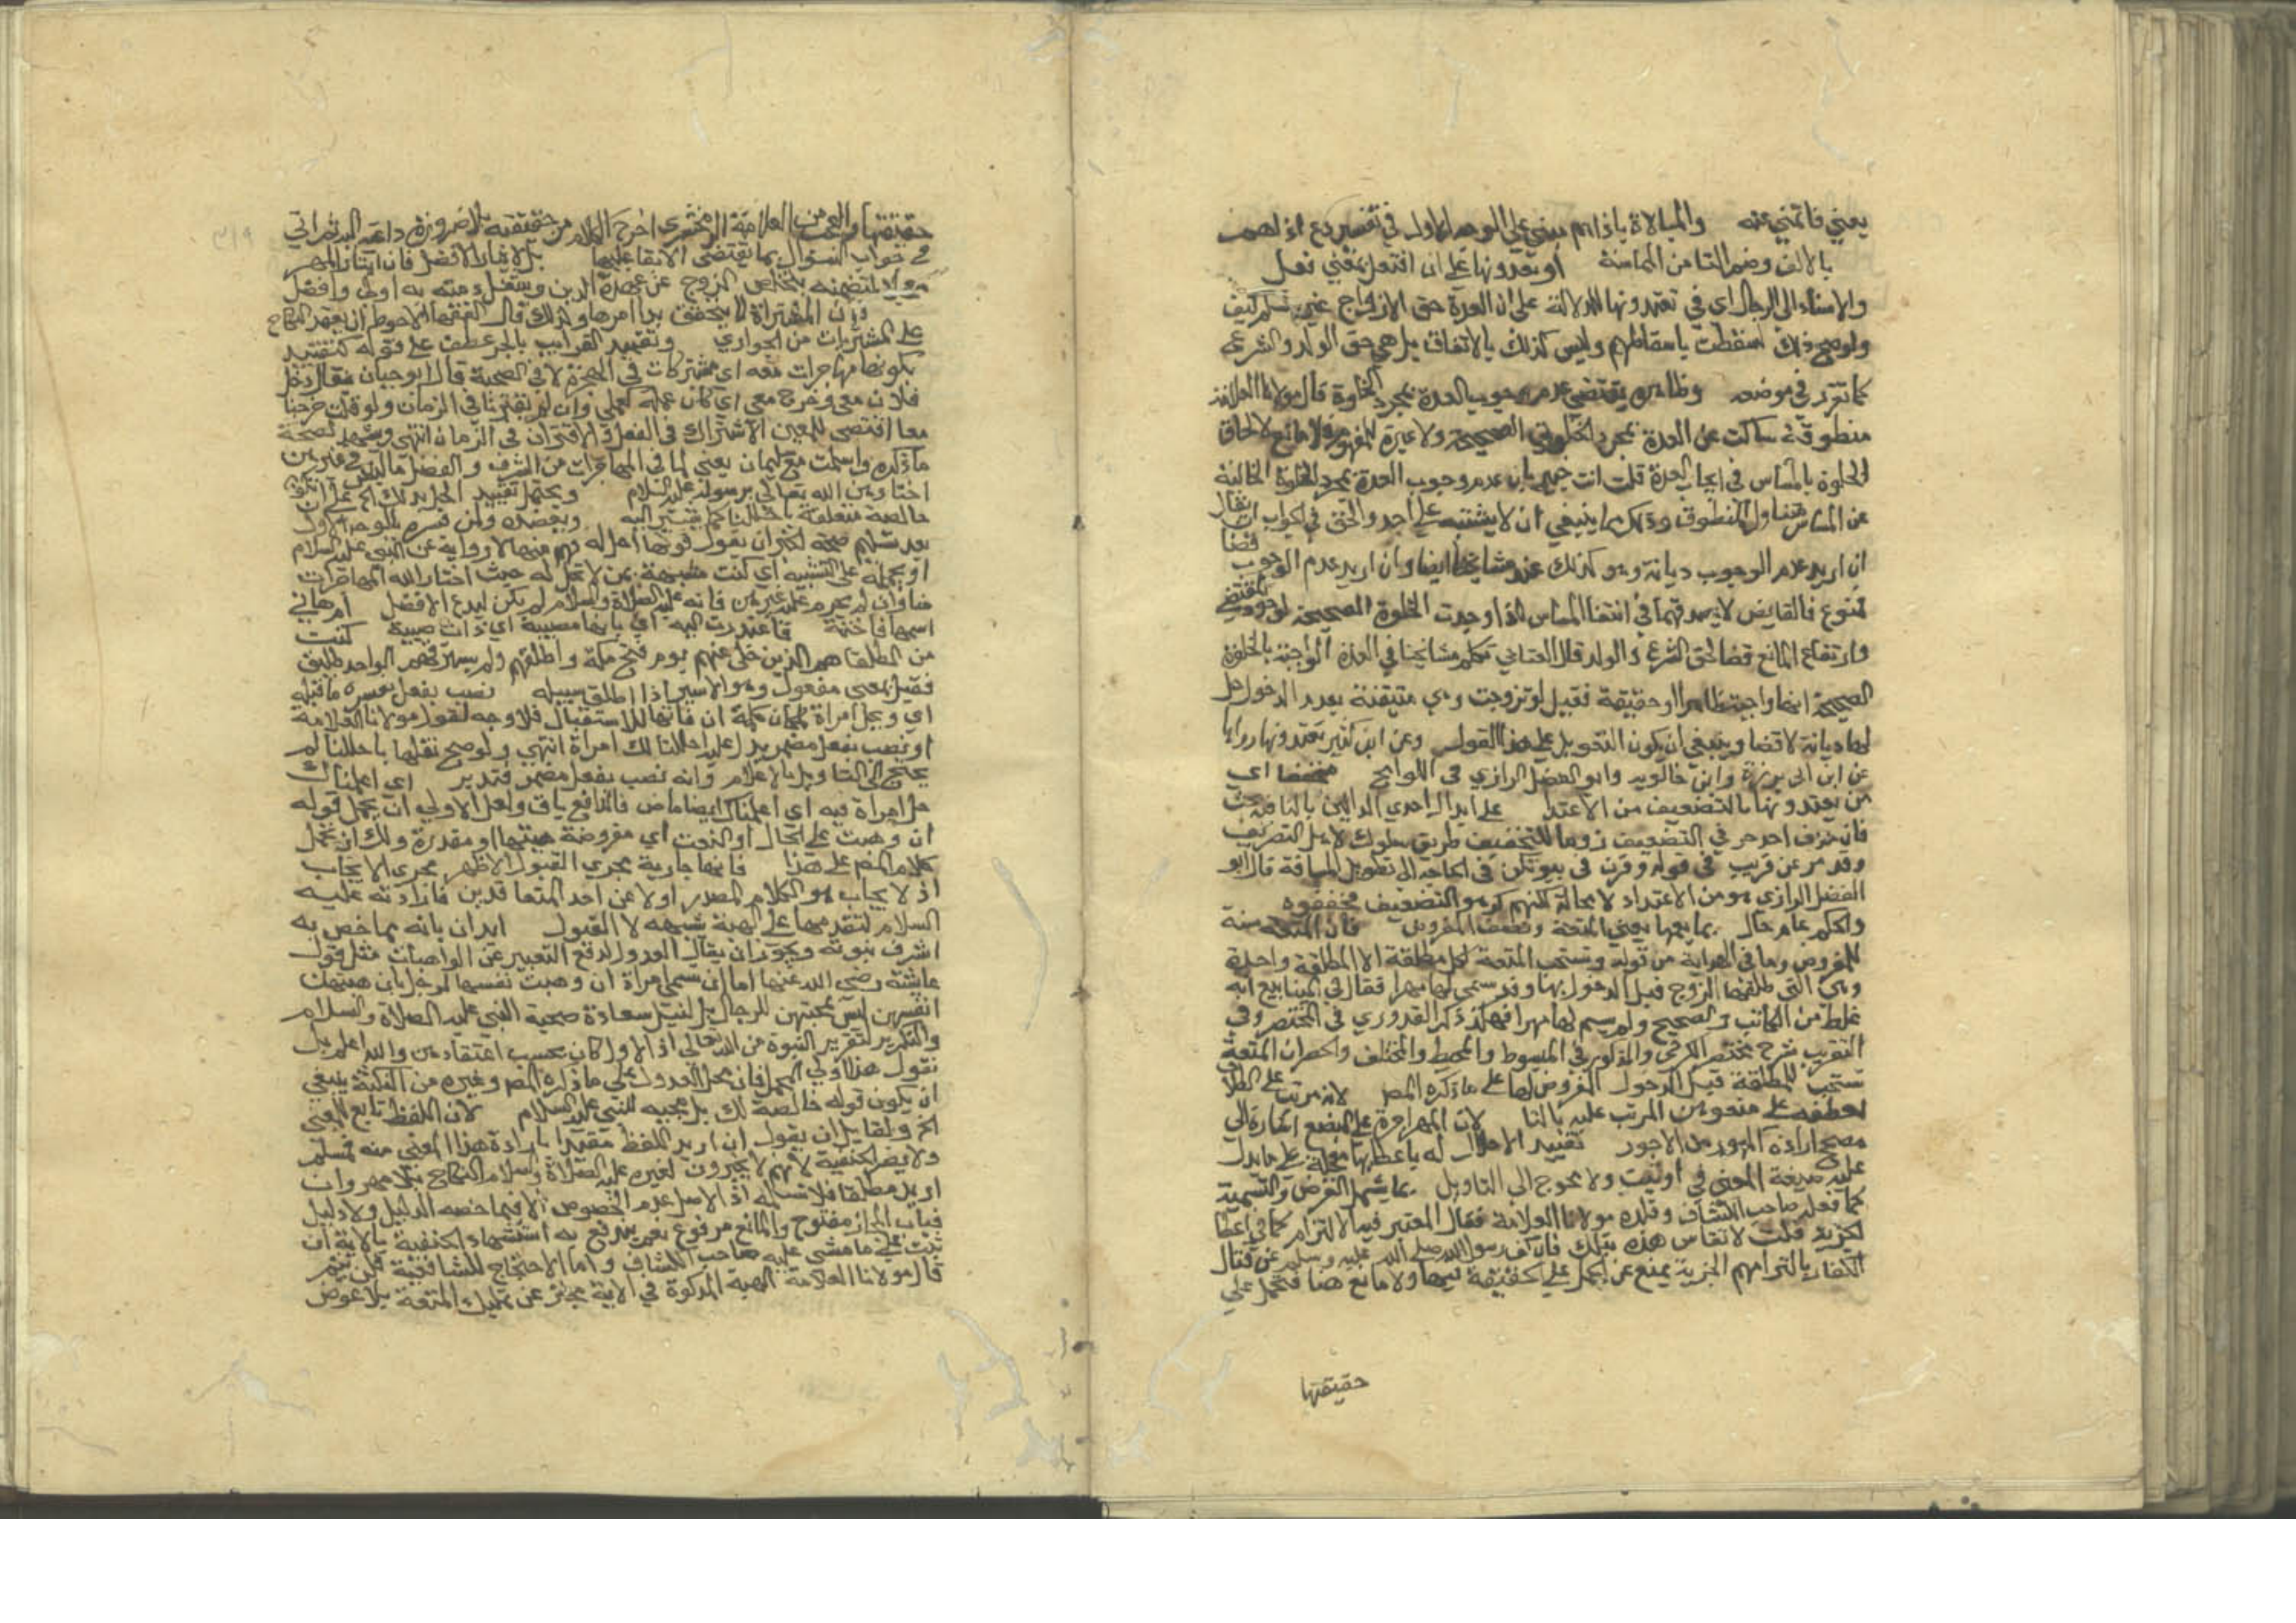 يعني فاتمني عنه والمبالاة باذاهم مبني على الوجه الاول في تفسير دع اذاهم
بالالف وضم التا من المماسة او تعدونها على ان افتعل بمعنى فعل
والاسناد الى الرجال اي في تعتدونها للدلالة على ان العدة حق الازواج غير مسلم كيف
ولو صح ذلك لسقطت باسقاطهم وليس كذلك بالاتفاق بل هي حق الولد والشرع
كما تقرر في موضعه وظاهره يقتضي عدم وجوب العدة بمجرد الخلوة قال مولانا العلامة
منطوقه ساكت عن العدة بمجرد الخلوة الصحيحة ولا عبرة للمفهوم فلا مانع لالحاق
الخلوة بالمساس في ايجاب العدة قلت انت خبير بان عدم وجوب العدة بمجرد الخلوة الخالية
عن المساس متناول المنطوق وذلك مما ينبغي ان لا يشتبه على احد والحق في الجواب ان يقال
ان اريد عدم الوجوب ديانة وهو كذلك عند مشايخنا ايضا وان اريد عدم الوجوب قضا
ممنوع فالقاضي لا يصدقهما في انتفا المساس اذا وجدت الخلوة الصحيحة لوجود مقتضيه
وارتفاع المانع قضا لحق الشرع والولد قال العتابي تكلم مشايخنا في العدة الواجبة بالخلوة
الصحيحة انها واجبة ظاهرا او حقيقة فقيل لو تزوجت وهي متيقنة بعدم الدخول حل
لها ديانة لا قضا وينبغي ان يكون التعويل على هذا القول وعن ابن كثير تعتدونها رواها
عن ابن ابي بزة وابن خالويه وابو الفضل الرازي في اللوامح مخففا اي
من يعتدونها بالتضعيف من الاعتداد على ابدال احدى الدالين بالتا
فان حذف احد حرفي التضعيف روما للتخفيف طريق سلوك لابدل التصريف
وقد مر عن قريب في قوله وقرن في بيوتكن في الحاجة الى تطويل المسافة قال ابو
الفضل الرازي هو من الاعتداد لا محالة لكنهم كرهوا التضعيف فخففوه
والحكم عام حال بما يعمها يعني المتعة ونصف المفروض فان المتعة سنة
للمفروض وما في الهداية من قوله وتستحب المتعة لكل مطلقة الا المطلقة واحدة
وهي التي طلقها الزوج قبل الدخول بها وقد سمى لها مهرا فقال في الينابيع انه
غلط من الكاتب والصحيح ولم يسم لها مهرا فهكذا ذكر القدوري في المختصر وفي
التقريب شرح مختصر الكرخي والمذكور في المبسوط والمحيط والمختلف والحصر ان المتعة
تستحب للمطلقة قبل الدخول المفروض لها على ما ذكره المص لانه مرتب على الطلاق
لعطفه على متعوهن المرتب عليه بالفا لان المهر اجرة على البضع اشارة الى
مصحح ارادة المهور من الاجور تقييد الاحلال له باعطائها معجلة على ما يدل
عليه صيغة المضي في اوتيت ولا يحوج الى التاويل بما يشمل الفرض والتسمية
كما فعله صاحب الكشاف وقلده مولانا العلامة فقال المعتبر فيه الالتزام كما في اعطا
الجزية قلت لا تقاس هذه بتلك فان كف رسول الله صلى الله عليه وسلم عن قتال
الكفار بالتزامهم الجزية يمنع عن الحمل على الحقيقة فيها ولا مانع هنا فتحمل على
حقيقتها
حقيقتها والعجب من العلامة الزمخشري اخرج الكلام من حقيقته بلا ضرورة داعية اليه ثم اتى
في جواب السؤال بما يقتضي الابقا عليها بل لايثار الافضل فان ايتا المهر
معجلا لتضمنه تخلص الزوج عن عهدة الدين وشغل ذمته به اولى وافضل
فان المشتراة لا يتحقق بدا امرها ولذلك قال الفقها الاحوط ان يعقد النكاح
على المشتريات من الجواري وتقييد القرايب بالجر عطف على قوله كتقييد
بكونها مهاجرات معه اي مشتركات في الهجرة لا في الصحبة قال ابو حيان يقال دخل
فلان معي وخرج معي اي كان عمله كعملي وان لم يقترنا في الزمان ولو قلت خرجنا
معا اقتضى المعنيين الاشتراك في الفعل والاقتران في الزمان انتهى ويشهد لصحة
ما ذكره واسلمت مع سليمان يعني لما في المهاجرات من الشرف والفضل ما ليس في غيرهن
اختارهن الله تعالى لرسوله عليه السلام ويحتمل تقييد الحل بذلك الخ على ان تكون
خالصة متعلقة باحللنا كما يشير اليه ويعضده ولمن فسره بالوجه الاول
بعد تسليم صحته لكن ان يقول قولها احل له فهم منها لا رواية عن النبي عليه السلام
او يحمله على التشبيه اي كنت مشبهة بمن لا تحل له حيث اختار الله المهاجرات
منا وان لم يحرم عليه غيرهن فانه عليه الصلاة والسلام لم يكن ليدع الافضل ام هاني
اسمها فاختة فاعتذرت اليه اي بانها مصيبة اي ذات صبية كنت
من الطلقا هم الذين خلى عنهم يوم فتح مكة واطلقهم ولم يسترقهم الواحد طليق
فعيل بمعنى مفعول وهو الاسير اذا اطلق سبيله نصب بفعل يفسره ما قبله
اي ويحل امراة لمكان كلمة ان فانها للاستقبال فلا وجه لقول مولانا العلامة
او نصب بفعل مضمر يدل عليه احللنا لك امراة انتهى ولو صح نقلها باحللنا لم
يحتج الى التاويل بالاعلام وانه نصب بفعل مضمر فتدبر اي اعلمناك
حل امراة فيه اي اعلمناك ايضا ماض فالدافع باق ولعل الاولى ان يحمل قوله
ان وهبت على الحال او النعت اي مفروضة هبتها او مقدرة ولك ان تحمل
كلام المص على هذا فانها جارية مجرى القبول الاظهر مجرى الايجاب
اذ الايجاب هو الكلام الصادر اولا عن احد المتعاقدين فارادته عليه
السلام لتقدمها على الهبة شبيهه لا القبول ايذان بانه مما خص به
لشرف نبوته ويجوز ان يقال العدول لدفع التعبير عن الواهبات مثل قول
عائشة رضي الله عنها اما ان تستحي امراة ان وهبت نفسها لرجل بان هبتهن
انفسهن ليس لمحبتهن للرجال بل لنيل سعادة صحبة النبي عليه الصلاة والسلام
والتكرير لتقرير النبوة من الله تعالى اذ الاول كان بحسب اعتقادهن والله اعلم بل
نقول هذا اولى المحمل فان محل العدول على ما ذكره المص وغيره من النكتة ينبغي
ان يكون قوله خالصة لك بل بحجبه للنبي عليه السلام لان اللفظ تابع للمعنى
الخ ولقايل ان يقول ان اريد اللفظ مقيدا بارادة هذا المعنى منه فمسلم
ولا يضر الحنفية لانهم لا يجيزون لغيره عليه الصلاة والسلام النكاح بلا مهر وان
اريد مطلقا فلا نسلم اذ الاصل عدم الخصوص الا فيما خصه الدليل ولا دليل
فباب المجاز مفتوح والمانع مرفوع نعم يندفع به استشهاد الحنفية بالاية ان
ثبت على ما مشى عليه صاحب الكشاف واما الاحتجاج للشافعية فلن يتم
قال مولانا العلامة الهبة المذكورة في الاية مجاز عن تمليك المتعة بلا عوض